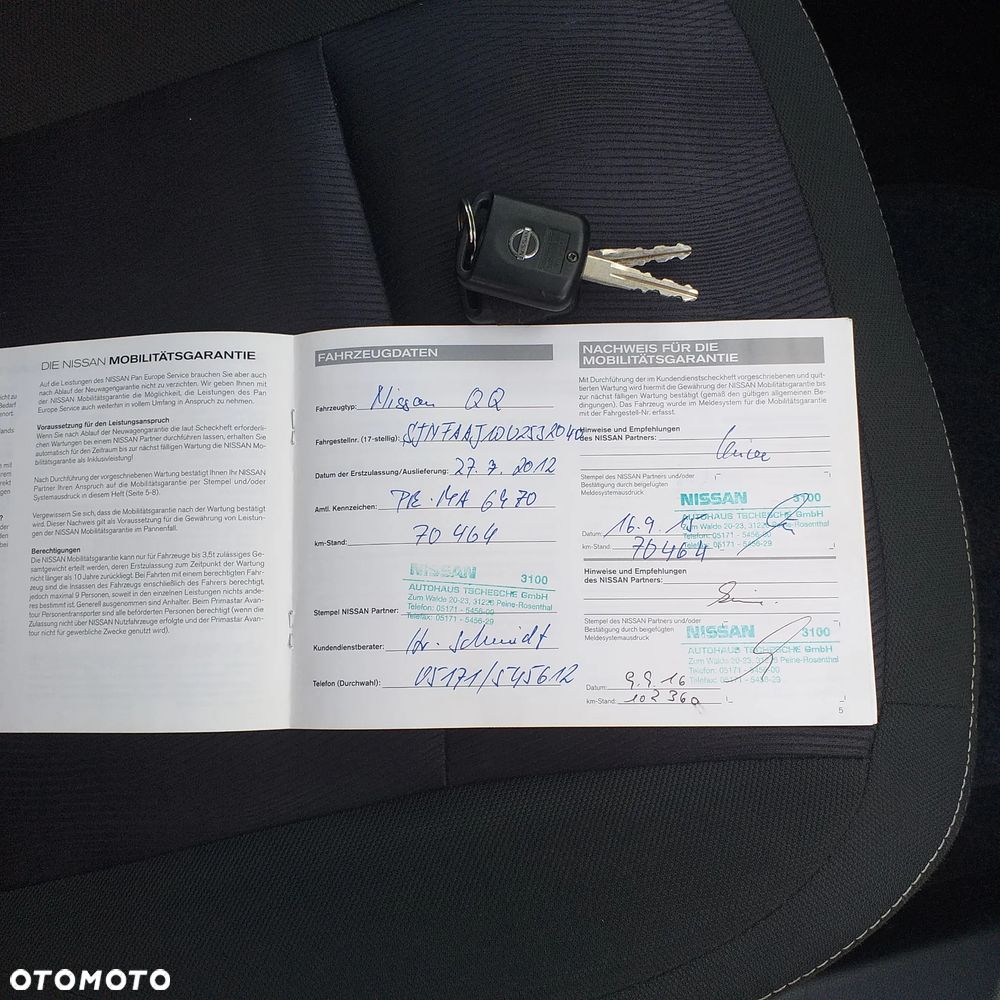 DIE NISSAN MOBILITÄTSGARANTIE
Auf die Leistungen des NISSAN Pan Europe Service brauchen Sie aber auch
nach Ablauf der Neuwagengarantie nicht zu verzichten. Wir geben Ihnen mit
der NISSAN Mobilitätsgarantie die Möglichkeit, die Leistungen des Pan
Europe Service auch weiterhin in vollem Umfang in Anspruch zu nehmen.
Voraussetzung für den Leistungsanspruch
Wenn Sie nach Ablauf der Neuwagengarantie die laut Scheckheft erforderli-
chen Wartungen bei einem NISSAN Partner durchführen lassen, erhalten Sie
automatisch für den Zeitraum bis zur nächsten fälligen Wartung die NISSAN Mo-
bilitätsgarantie als Inklusivleistung!
Nach Durchführung der vorgeschriebenen Wartung bestätigt Ihnen Ihr NISSAN
Partner Ihren Anspruch auf die Mobilitätsgarantie per Stempel und/oder
Systemausdruck in diesem Heft (Seite 5-8).
Vergewissern Sie sich, dass die Mobilitätsgarantie nach der Wartung bestätigt
wird. Dieser Nachweis gilt als Voraussetzung für die Gewährung von Leistun-
gen der NISSAN Mobilitätsgarantie im Pannenfall.
Berechtigungen
Die NISSAN Mobilitätsgarantie kann nur für Fahrzeuge bis 3,5t zulässiges Ge-
samtgewicht erteilt werden, deren Erstzulassung zum Zeitpunkt der Wartung
nicht länger als 10 Jahre zurückliegt. Bei Fahrten mit einem berechtigten Fahr-
zeug sind die Insassen des Fahrzeugs einschließlich des Fahrers berechtigt,
jedoch maximal 9 Personen, soweit in den einzelnen Leistungen nichts ande-
res bestimmt ist. Generell ausgenommen sind Anhalter. Beim Primastar Avan-
tour Personentransporter sind alle beförderten Personen berechtigt (wenn die
Zulassung nicht über NISSAN Nutzfahrzeuge erfolgte und der Primastar Avan-
tour nicht für gewerbliche Zwecke genutzt wird).
FAHRZEUGDATEN
Fahrzeugtyp: Nissan QQ
Fahrgestellnr. (17-stellig):
Datum der Erstzulassung/Auslieferung: 27.7.2012
Amtl. Kennzeichen: PE-MA 6470
70 464
km-Stand:
NISSAN 3100
AUTOHAUS TSCHESCHE GmbH
Zum Walde 20-23, 31226 Peine-Rosenthal
Telefon: 05171 - 5456-00
Telefax: 05171 - 5456-29
Stempel NISSAN Partner:
Kundendienstberater: Hr. Schmidt
Telefon (Durchwahl): 05171/545612
NACHWEIS FÜR DIE
MOBILITÄTSGARANTIE
Mit Durchführung der im Kundendienstscheckheft vorgeschriebenen und quit-
tierten Wartung wird hiermit die Gewährung der NISSAN Mobilitätsgarantie bis
zur nächst fälligen Wartung bestätigt (gemäß den gültigen allgemeinen Be-
dingungen). Das Fahrzeug wurde im Meldesystem für die Mobilitätsgarantie
mit der Fahrgestell-Nr. erfasst.
Hinweise und Empfehlungen
des NISSAN Partners:
Stempel des NISSAN Partners und/oder
Bestätigung durch beigefügten
Meldesystemausdruck
NISSAN 3100
AUTOHAUS TSCHESCHE GmbH
Zum Walde 20-23, 31226 Peine-Rosenthal
Telefon: 05171 - 5456-00
Telefax: 05171 - 5456-29
Datum: 16.9.15
km-Stand: 70464
Hinweise und Empfehlungen
des NISSAN Partners:
Stempel des NISSAN Partners und/oder
Bestätigung durch beigefügten
Meldesystemausdruck
NISSAN 3100
AUTOHAUS TSCHESCHE GmbH
Zum Walde 20-23, 31226 Peine-Rosenthal
Telefon: 05171 - 5456-00
Telefax: 05171 - 5456-29
Datum: 9.9.16
km-Stand: 102 360
5
OTOMOTO